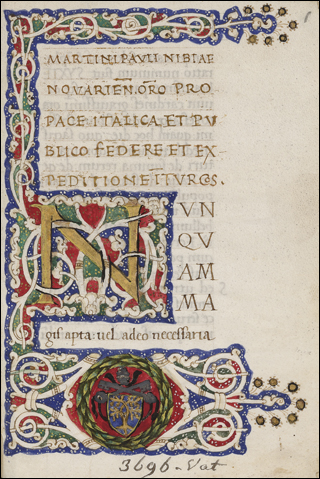 MARTINI PAVLI NIBIAE
NOVARIEN̄. OR̄O PRO
PACE ITALICA, ET PV
BLICO FEDERE ET EX
PEDITIONE Ī TVRCOS.
NVN
QV
AM
MA
gis apta: uel adeo necessaria
3696. Vat